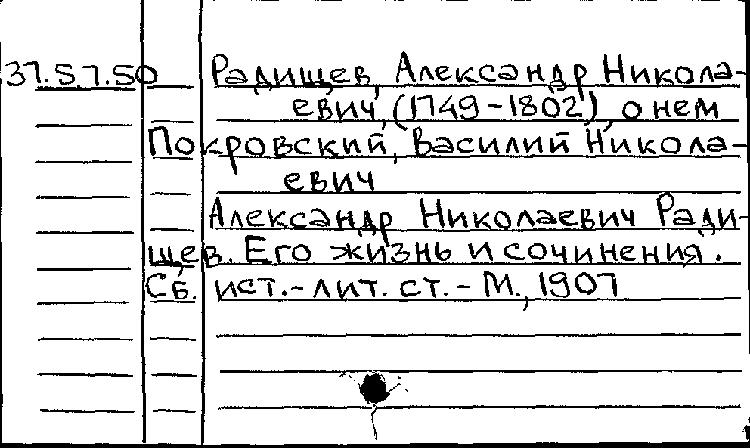 37.5.7.50 Радищев, Александр Никола-
евич, (1749-1802), о нем
Покровский, Василий Никола-
евич
Александр Николаевич Ради-
щев. Его жизнь и сочинения.
Сб. ист.-лит. ст. - М., 1907